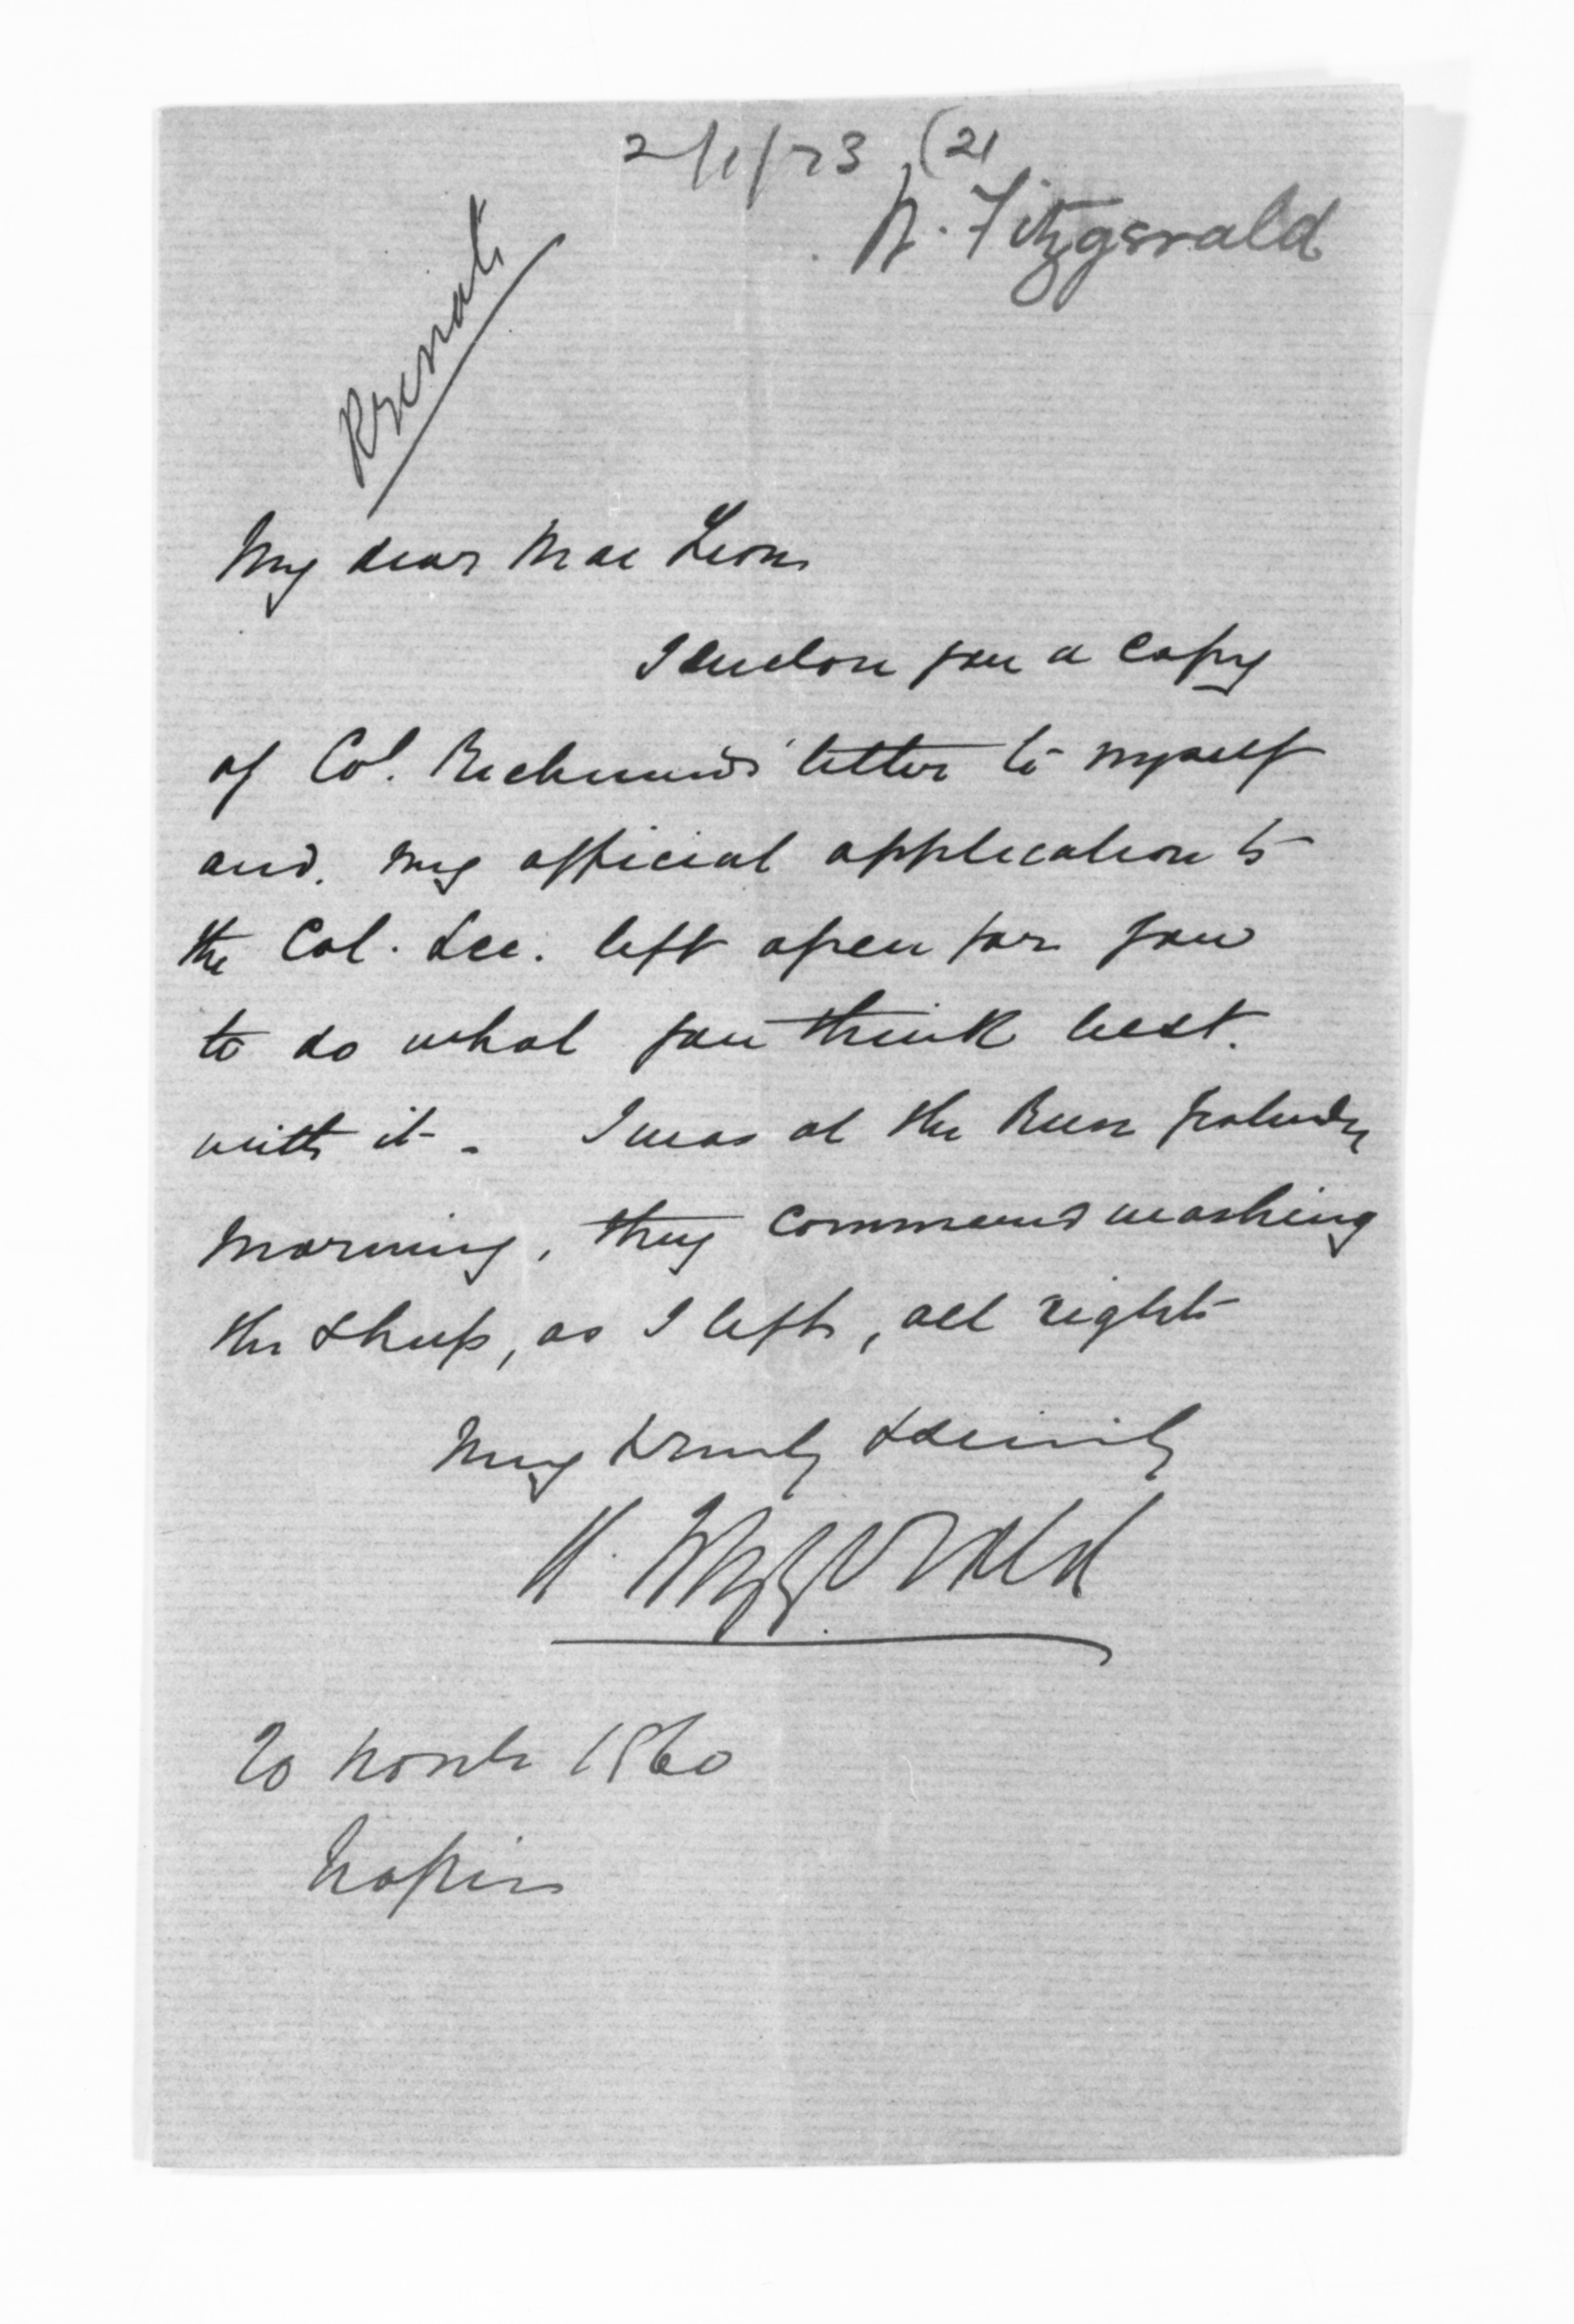 2/1/73 (21
N. Fitzgerald
Private
My dear Mac Lean
I enclose you a copy
of Col. Richmond's letter to myself
and. my official application to
the Col. Sec. left open for you
to do what you think best.
with it - I was at the Run
morning, they commenced washing
the sheep, as I left, all right
Very truly
N. Fitzgerald
20 Novbr 1860
Napier